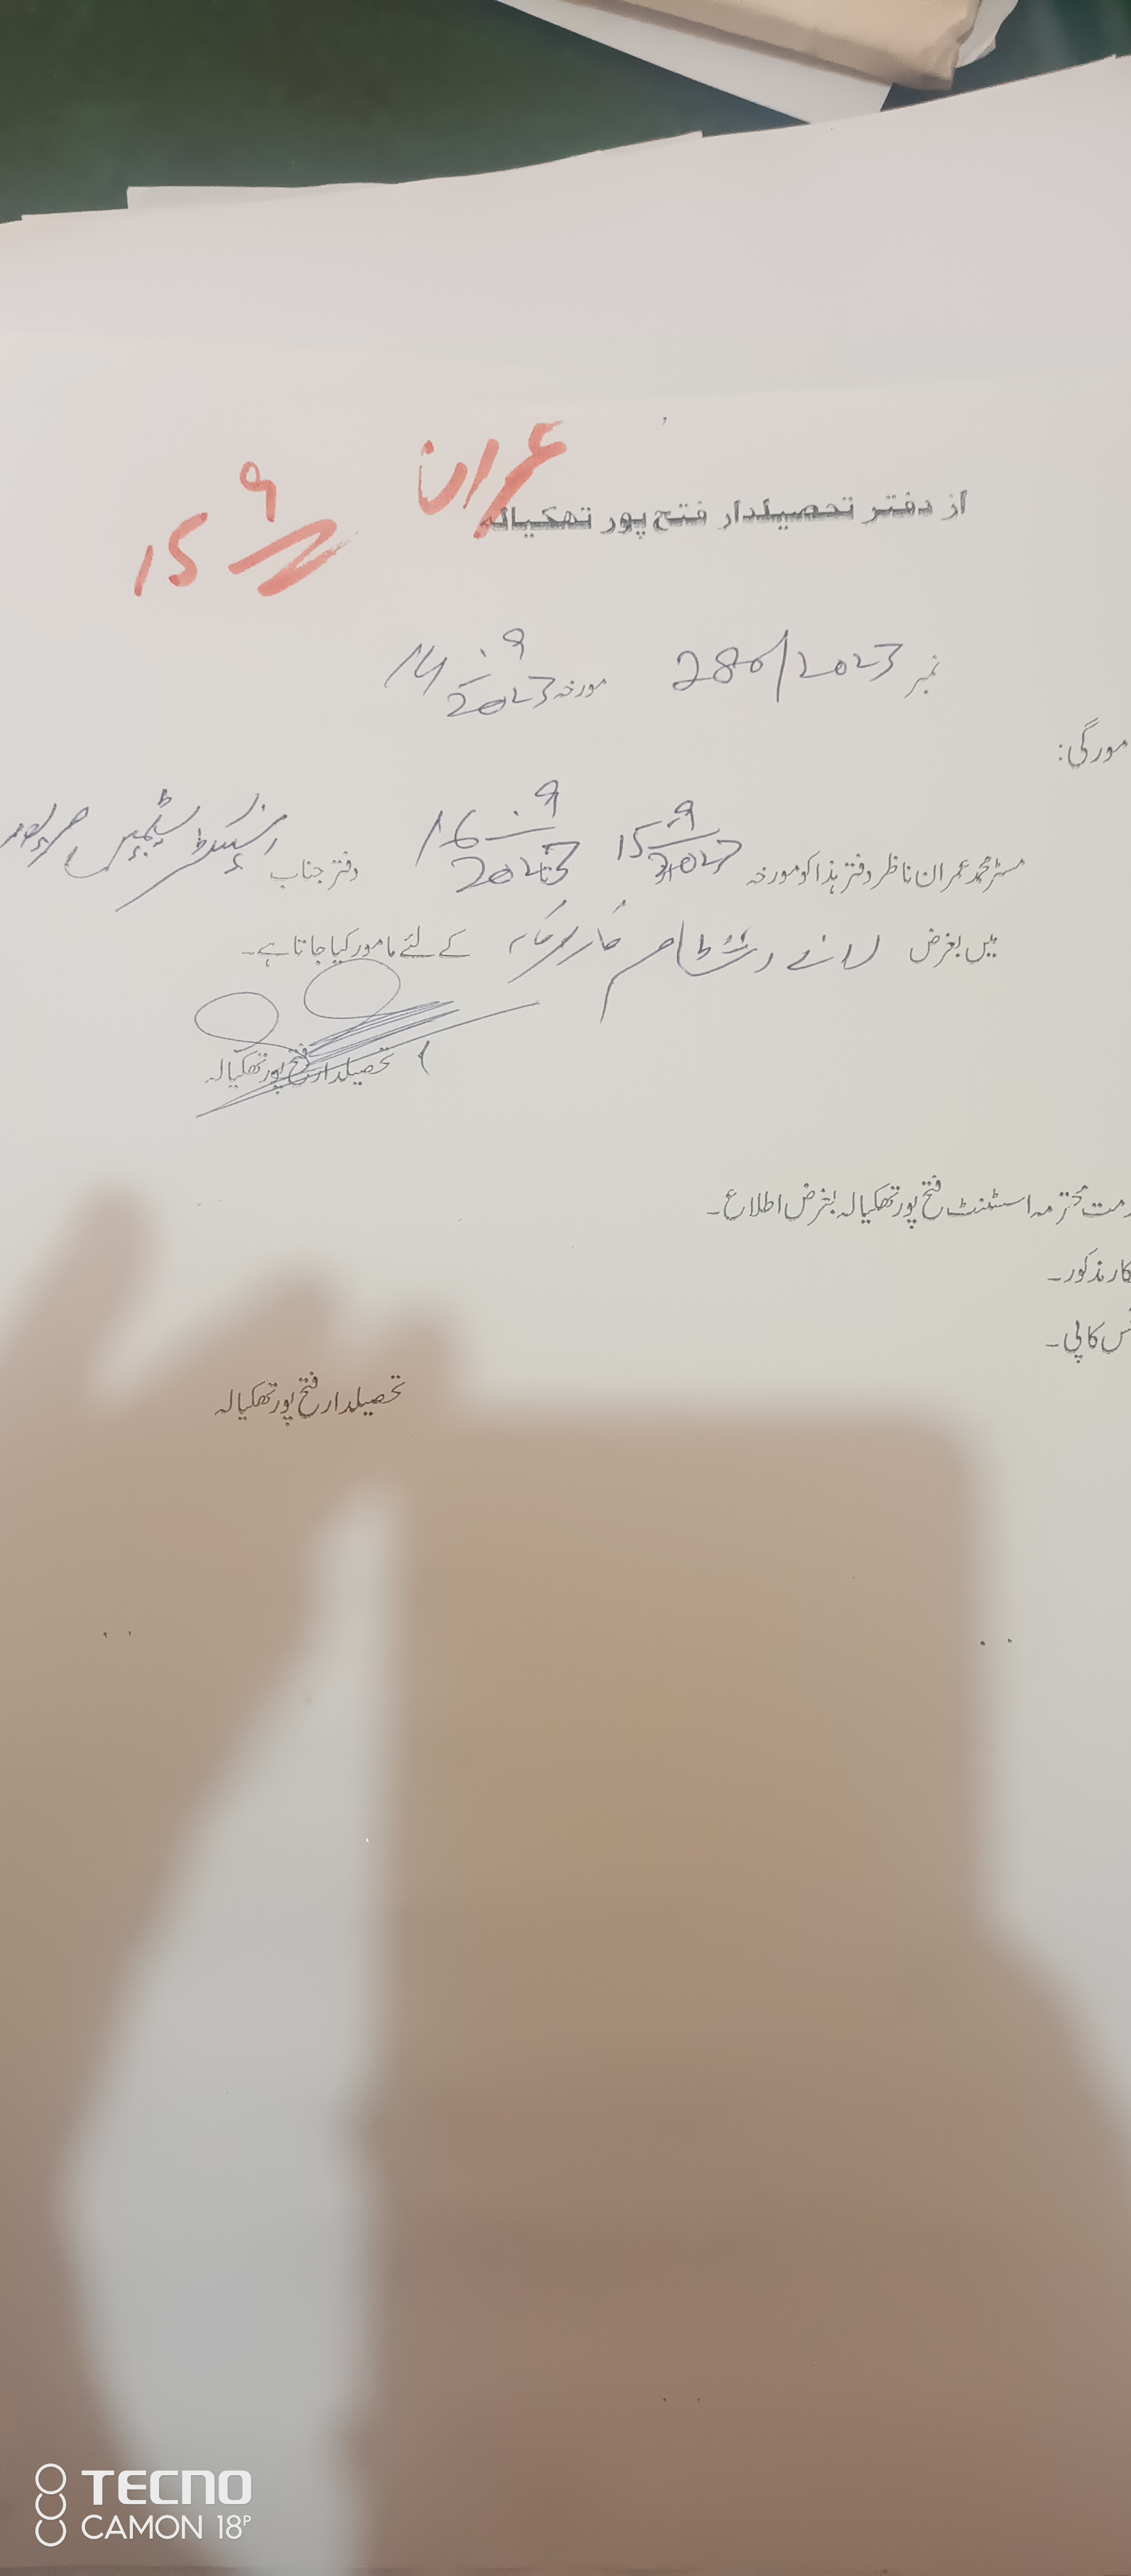 عمران 15/9
از دفتر تحصیلدار فتح پور تھکیالہ
نمبر 280/2023 مورخہ 14.9/2023
مورگی:
مسٹر محمد عمران ناظر دفتر ہذا کو مورخہ 15.9/2023 تا 16.9/2023 دفتر جناب انسپکٹر سٹیمپس میرپور
میں بغرض لانے اشٹام کے لئے مامور کیا جاتا ہے۔
تحصیلدار فتح پور تھکیالہ
مت محترمہ اسسٹنٹ فتح پور تھکیالہ بغرض اطلاع۔
کار مذکور۔
س کاپی۔
تحصیلدار فتح پور تھکیالہ
TECNO
CAMON 18P